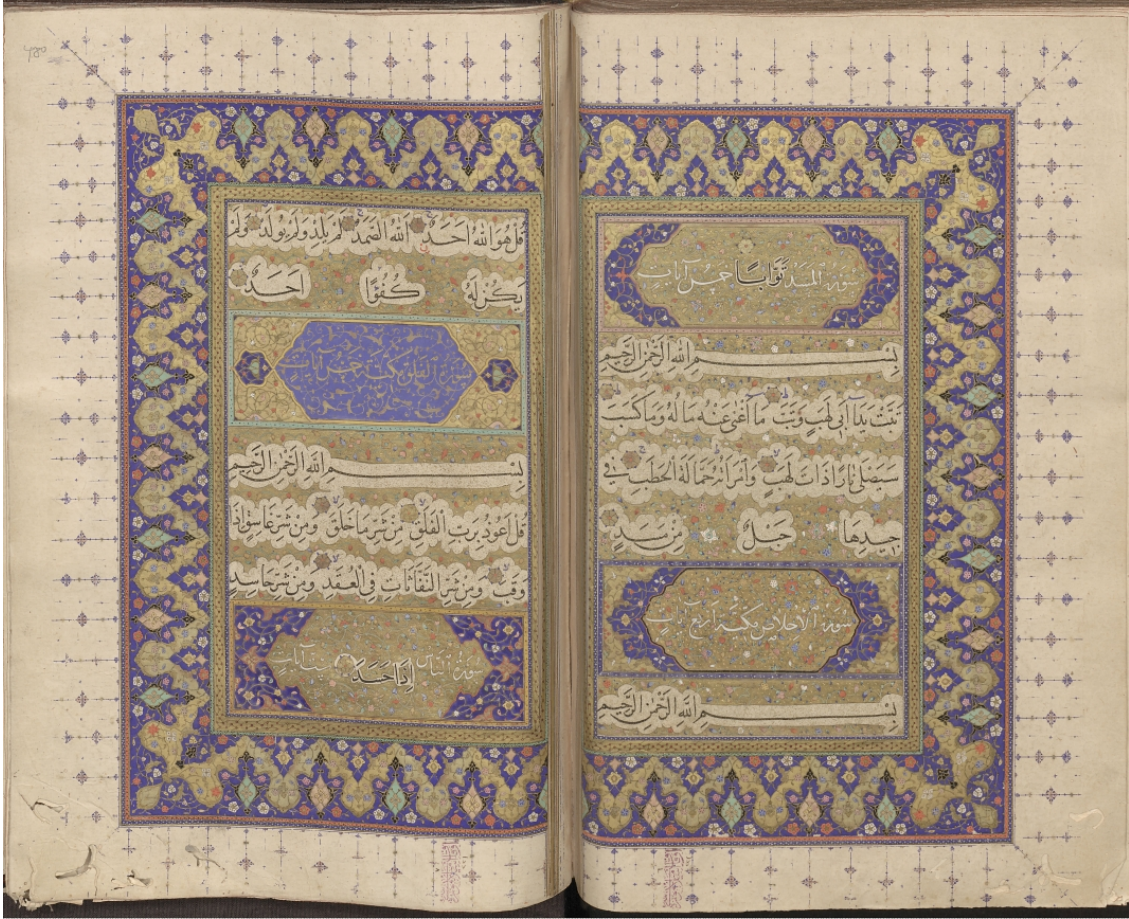 سورة المسد توابا خمس آيات
بسم الله الرحمن الرحيم
تبت يدا ابى لهب وتب ما اغنى عنه ماله وما كسب
سيصلى نارا ذات لهب وامراته حمالة الحطب فى
جيدها حبل من مسد
سورة الاخلاص مكية اربع آيات
بسم الله الرحمن الرحيم
قل هو الله احد الله الصمد لم يلد ولم يولد ولم
يكن له كفوا احد
سورة الفلق مكية خمس آيات
بسم الله الرحمن الرحيم
قل اعوذ برب الفلق من شر ما خلق ومن شر غاسق اذا
وقب ومن شر النفاثات فى العقد ومن شر حاسد
سورة الناس اذا حسد ست آيات